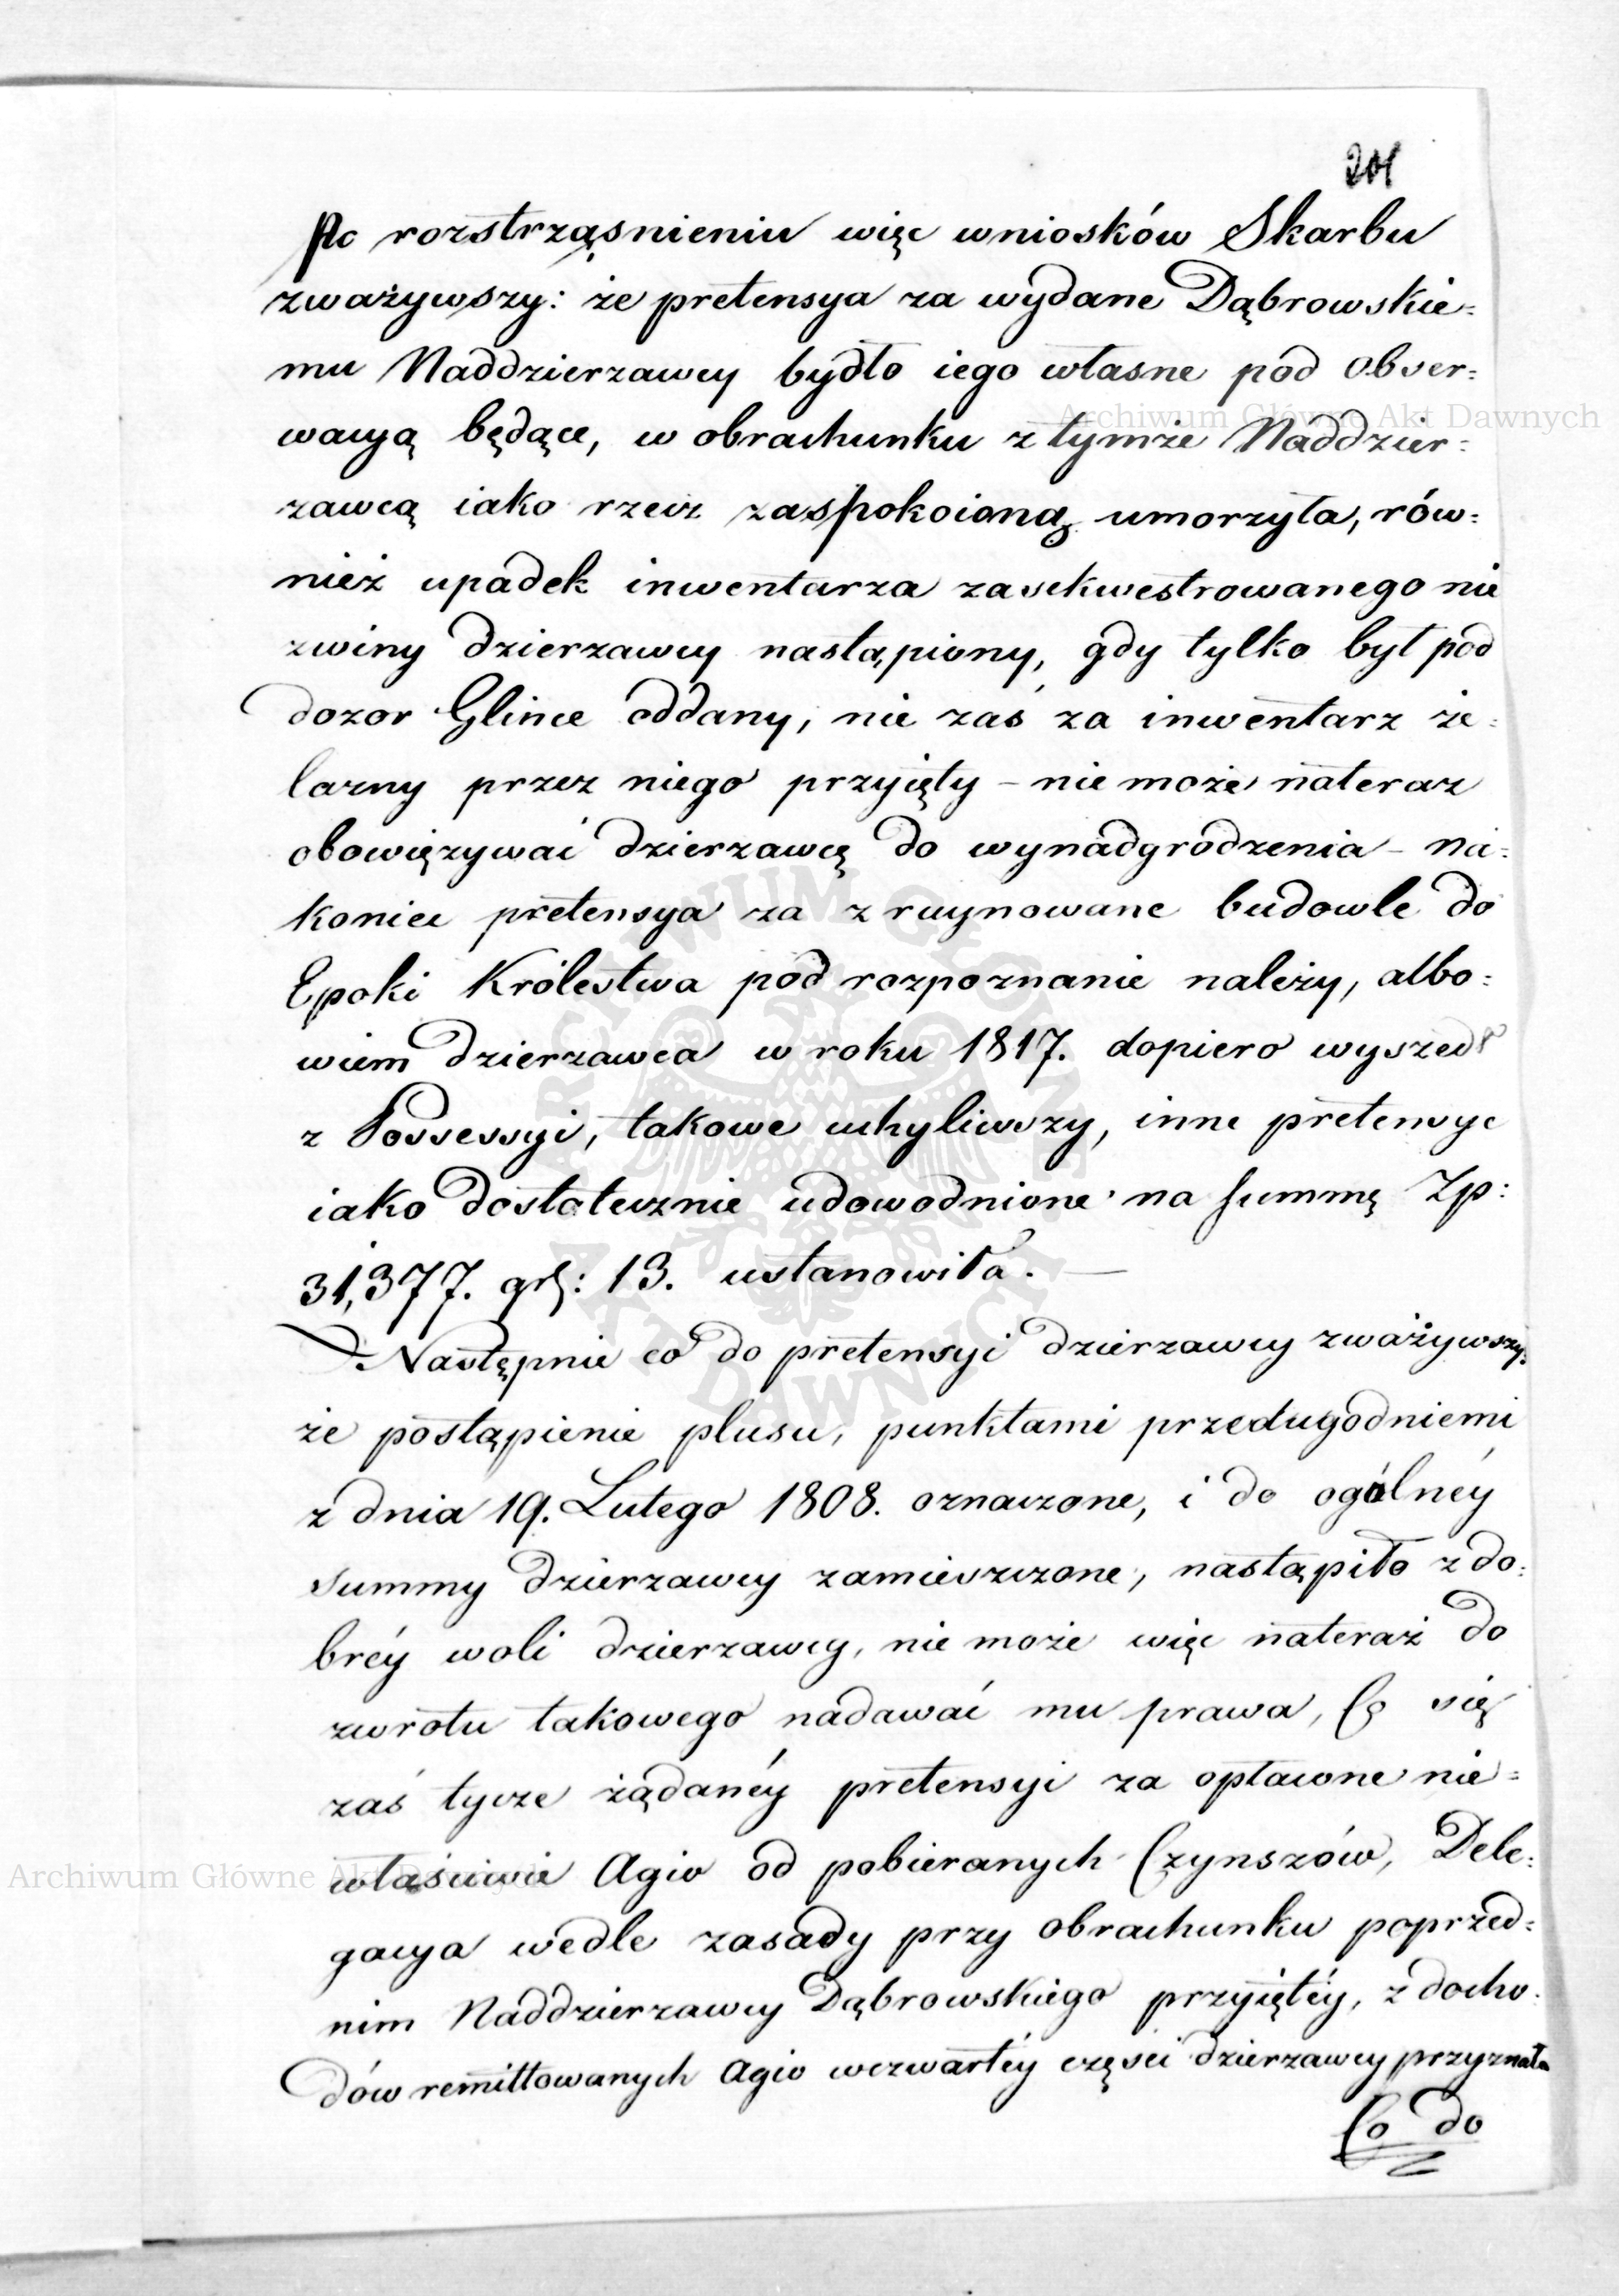 201
Po rozstrząsnieniu więc wniosków Skarbu
zważywszy: że pretensya za wydane Dąbrowskie=
mu Naddzierzawcy bydło iego własne pod obser=
wacyą będące, w obrachunku z tymże Naddzier=
zawcą iako rzecz zaspokoioną umorzyła, rów=
nież upadek inwentarza zasekwestrowanego nie
zwiny dzierzawcy nastąpiony, gdy tylko był pod
dozor Glince oddany, nie zaś za inwentarz że=
lazny przez niego przyjęty – nie może nateraz
obowięzywać dzierzawcę do wynadgrodzenia – na=
koniec pretensya za zruynowane budowle do
Epoki Królestwa pod rozpoznanie należy, albo=
wiem dzierzawca w roku 1817. dopiero wyszedł
z Possessyi, takowe uchyliwszy, inne pretensye
iako dostatecznie udowodnione na summę Zp:
31,377. gr: 13. ustanowiła. —
Następnie co do pretensyi dzierzawcy zważywszy:
że postąpienie plusu, punktami przedugodniemi
z dnia 19. Lutego 1808. oznaczone, i do ogólnéy
summy dzierzawcy zamieszczone, nastąpiło z do=
bréy woli dzierzawcy, nie może więc nateraż do
zwrotu takowego nadawać mu prawa, Co się
zaś tycze żądanéy pretensyi za opłacone nie=
właściwie Agio od pobieranych Czynszów, Dele=
gacya wedle zasady przy obrachunku poprzed=
nim Naddzierzawcy Dąbrowskiego przyiętéy, z docho=
dów remittowanych Agio wczwartéy części dzierzawcy przyznała
Co do
Archiwum Główne Akt Dawnych
Archiwum Główne Akt Dawnych
ARCHIWUM GŁÓWNE AKT DAWNYCH